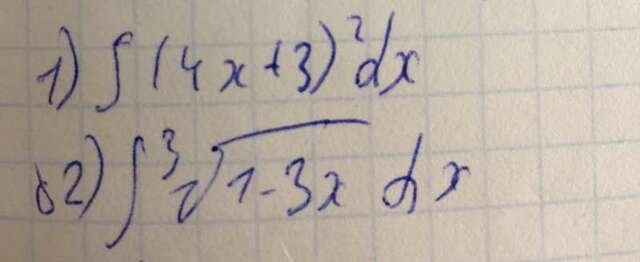 1) ∫(4x+3)²dx
2) ∫∛(1-3x) dx